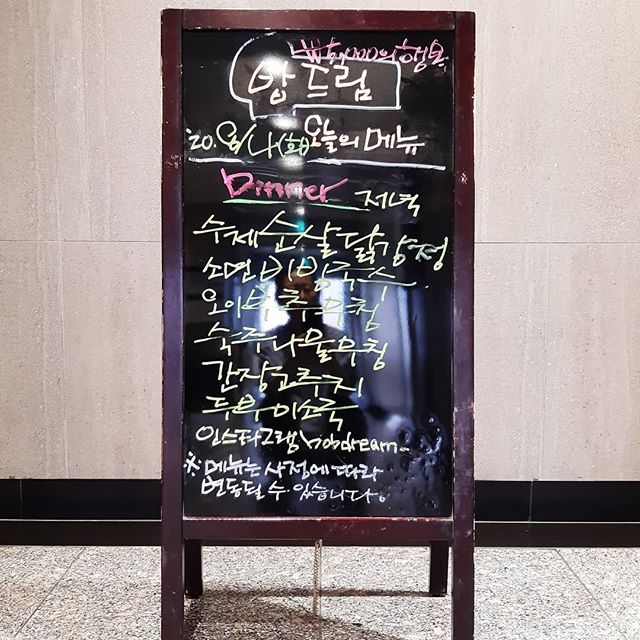 ₩6,000의 행복
밥드림
'20. 9/1(화) 오늘의 메뉴
Dinner 저녁
수제순살닭강정
소면비빔국수
오이부추무침
숙주나물무침
간장고추지
두부미소국
인스타그램 bobdream_
※ 메뉴는 사정에 따라
변동될 수 있습니다.